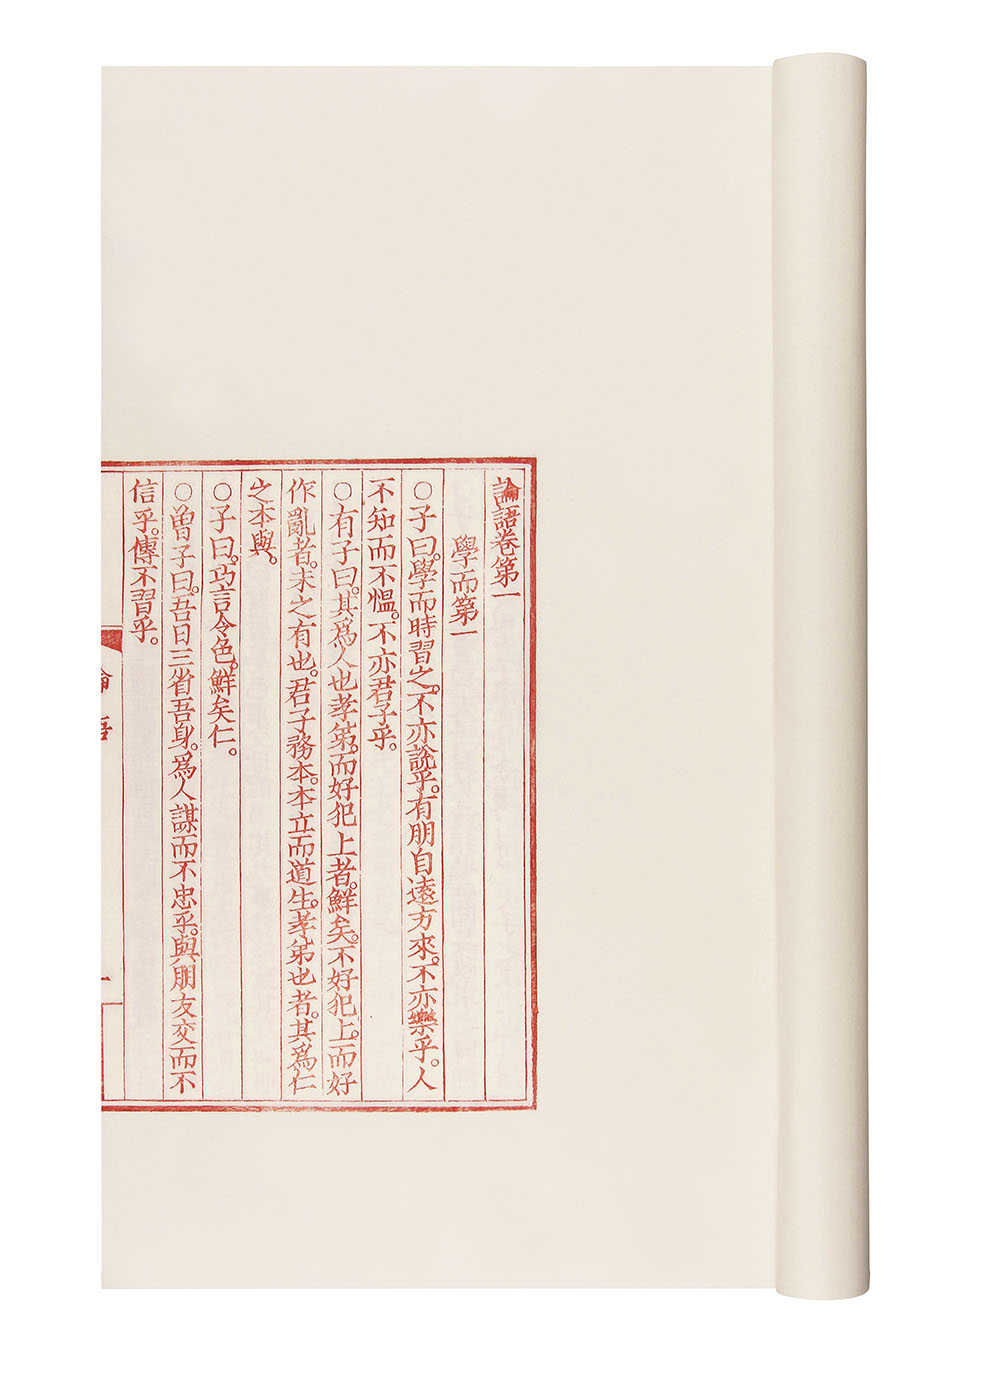 論語卷第一
學而第一
○子曰。學而時習之。不亦說乎。有朋自遠方來。不亦樂乎。人
不知而不慍。不亦君子乎。
○有子曰。其爲人也孝弟。而好犯上者。鮮矣。不好犯上。而好
作亂者。未之有也。君子務本。本立而道生。孝弟也者。其爲仁
之本與。
○子曰。巧言令色。鮮矣仁。
○曾子曰。吾日三省吾身。爲人謀而不忠乎。與朋友交而不
信乎。傳不習乎。